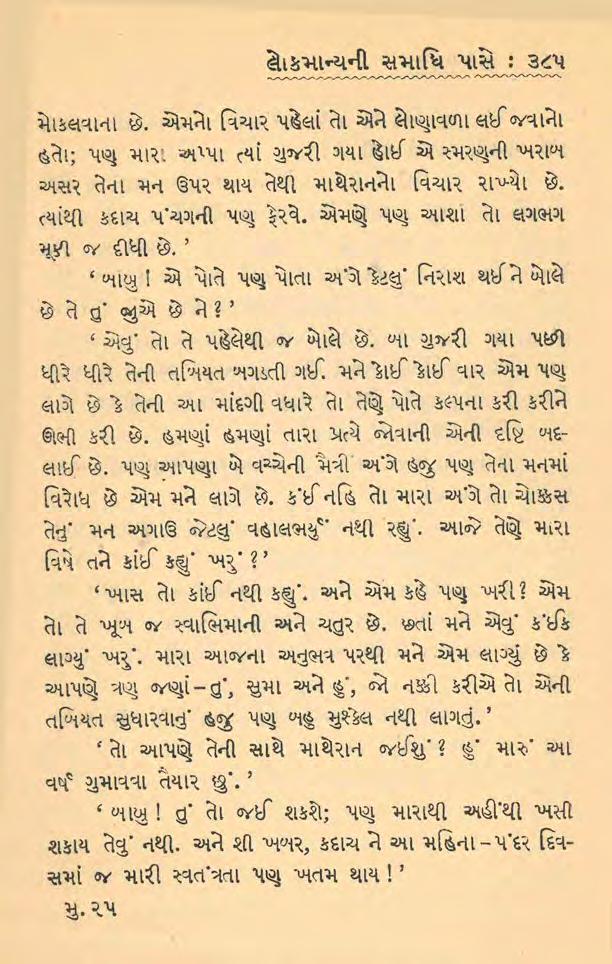 લોકમાન્યની સમાધિ પાસે : ૩૮૫
મોકલવાના છે. એમનો વિચાર પહેલાં તો એને લોણાવળા લઈ જવાનો
હતો; પણ મારા અપ્પા ત્યાં ગુજરી ગયા હોઈ એ સ્મરણની ખરાબ
અસર તેના મન ઉપર થાય તેથી માથેરાનનો વિચાર રાખ્યો છે.
ત્યાંથી કદાચ પંચગની પણ ફેરવે. એમણે પણ આશા તો લગભગ
મૂકી જ દીધી છે.’
‘બાબુ ! એ પોતે પણ પોતા અંગે કેટલું નિરાશ થઈને બોલે
છે તે તું જુએ છે ને?’
‘એવું તો તે પહેલેથી જ બોલે છે. બા ગુજરી ગયા પછી
ધીરે ધીરે તેની તબિયત બગડતી ગઈ. મને કોઈ કોઈ વાર એમ પણ
લાગે છે કે તેની આ માંદગી વધારે તો તેણે પોતે કલ્પના કરી કરીને
ઊભી કરી છે. હમણાં હમણાં તારા પ્રત્યે જોવાની એની દૃષ્ટિ બદ-
લાઈ છે. પણ આપણા બે વચ્ચેની મૈત્રી અંગે હજુ પણ તેના મનમાં
વિરોધ છે એમ મને લાગે છે. કંઈ નહિ તો મારા અંગે તો ચોક્કસ
તેનું મન અગાઉ જેટલું વહાલભર્યું નથી રહ્યું. આજે તેણે મારા
વિષે તને કાંઈ કહ્યું ખરું ?’
‘ખાસ તો કાંઈ નથી કહ્યું. અને એમ કહે પણ ખરી? એમ
તો તે ખૂબ જ સ્વાભિમાની અને ચતુર છે. છતાં મને એવું કંઈક
લાગ્યું ખરું. મારા આજના અનુભવ પરથી મને એમ લાગ્યું છે કે
આપણે ત્રણ જણાં – તું, સુમા અને હું, જો નક્કી કરીએ તો એની
તબિયત સુધારવાનું હજુ પણ બહુ મુશ્કેલ નથી લાગતું.’
‘તો આપણે તેની સાથે માથેરાન જઈશું ? હું મારું આ
વર્ષ ગુમાવવા તૈયાર છું.’
‘બાબુ ! તું તો જઈ શકશે; પણ મારાથી અહીંથી ખસી
શકાય તેવું નથી. અને શી ખબર, કદાચ ને આ મહિના – પંદર દિવ-
સમાં જ મારી સ્વતંત્રતા પણ ખતમ થાય !’
મુ. ૨૫